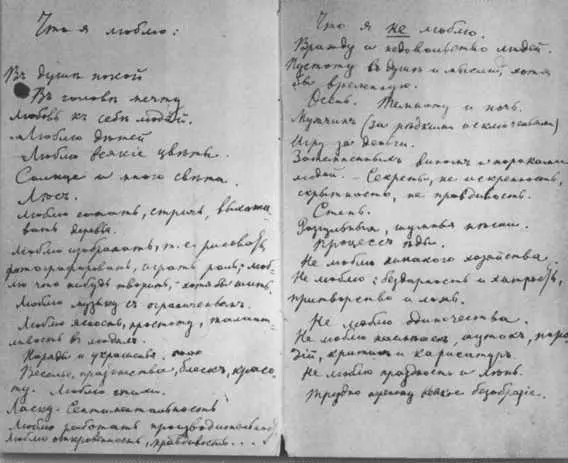 Что я люблю:
Въ душѣ покой
Въ головѣ мечту
Любовь къ себѣ людей.
Люблю дѣтей
Люблю всякіе цвѣты.
Солнце и много свѣта.
Лѣсъ.
Люблю сажать, стричь, выхажи-
вать деревья.
Люблю изображать, т.е. рисовать,
фотографировать, играть роль; люб-
лю что нибудь творить, - хотя бы шить.
Люблю музыку съ ограниченіемъ.
Люблю ясность, простоту, талант-
ливость въ людяхъ.
Наряды и украшенія.
Веселье, празднества, блескъ, красо-
ту. Люблю стихи.
Ласку. Сентиментальность
Люблю работать производительно
Люблю откровенность, правдивость...
Что я не люблю.
Вражду и недовольство людей.
Пустоту въ душѣ и мысляхъ, хотя
бы временную.
Осень. Темноту и ночь.
Мужчинъ (за рѣдкими исключеніями)
Игру за деньги.
виномъ и пороками
людей. - Секреты, не искренность,
скрытность, не правдивость.
Степь.
Разгульныя, шумныя пѣсни.
Процессъ ѣды.
Не люблю никакого хозяйства.
Не люблю: бездарность и хитрость,
притворство и ложь.
Не люблю одиночества.
Не люблю насмѣшекъ, шутокъ, паро-
дій, критики и карикатуръ.
Не люблю праздность и лѣнь.
Трудно переношу всякое безобразіе.